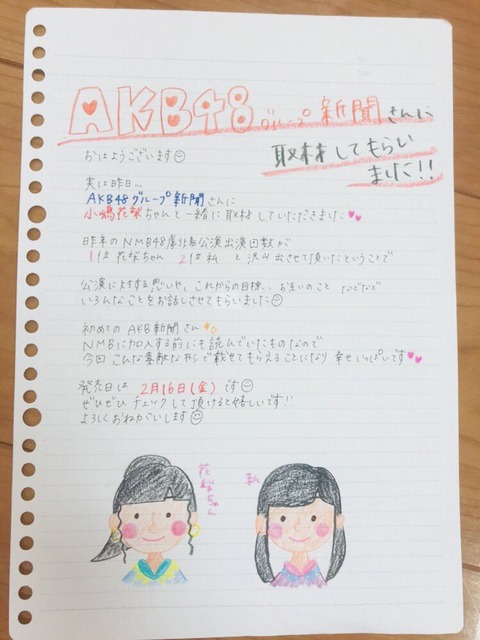 AKB48グループ新聞さんに
取材してもらい
ました!!
おはようございます
実は昨日、、
AKB48グループ新聞さんに
小嶋花梨ちゃんと一緒に取材していただきました
昨年のNMB48劇場公演出演回数が
1位花梨ちゃん 2位私 と沢山出させて頂いたということで
公演に対する思いや、これからの目標、お互いのこと などなど
いろんなことをお話しさせてもらいました
初めてのAKB新聞さん
NMBに加入する前にも読んでいたものなので
今回こんな素敵な形で載せてもらえることになり 幸せいっぱいです
発売日は 2月16日(金) です
ぜひぜひチェックして頂けると嬉しいです!!
よろしくおねがいします
花梨ちゃん
私